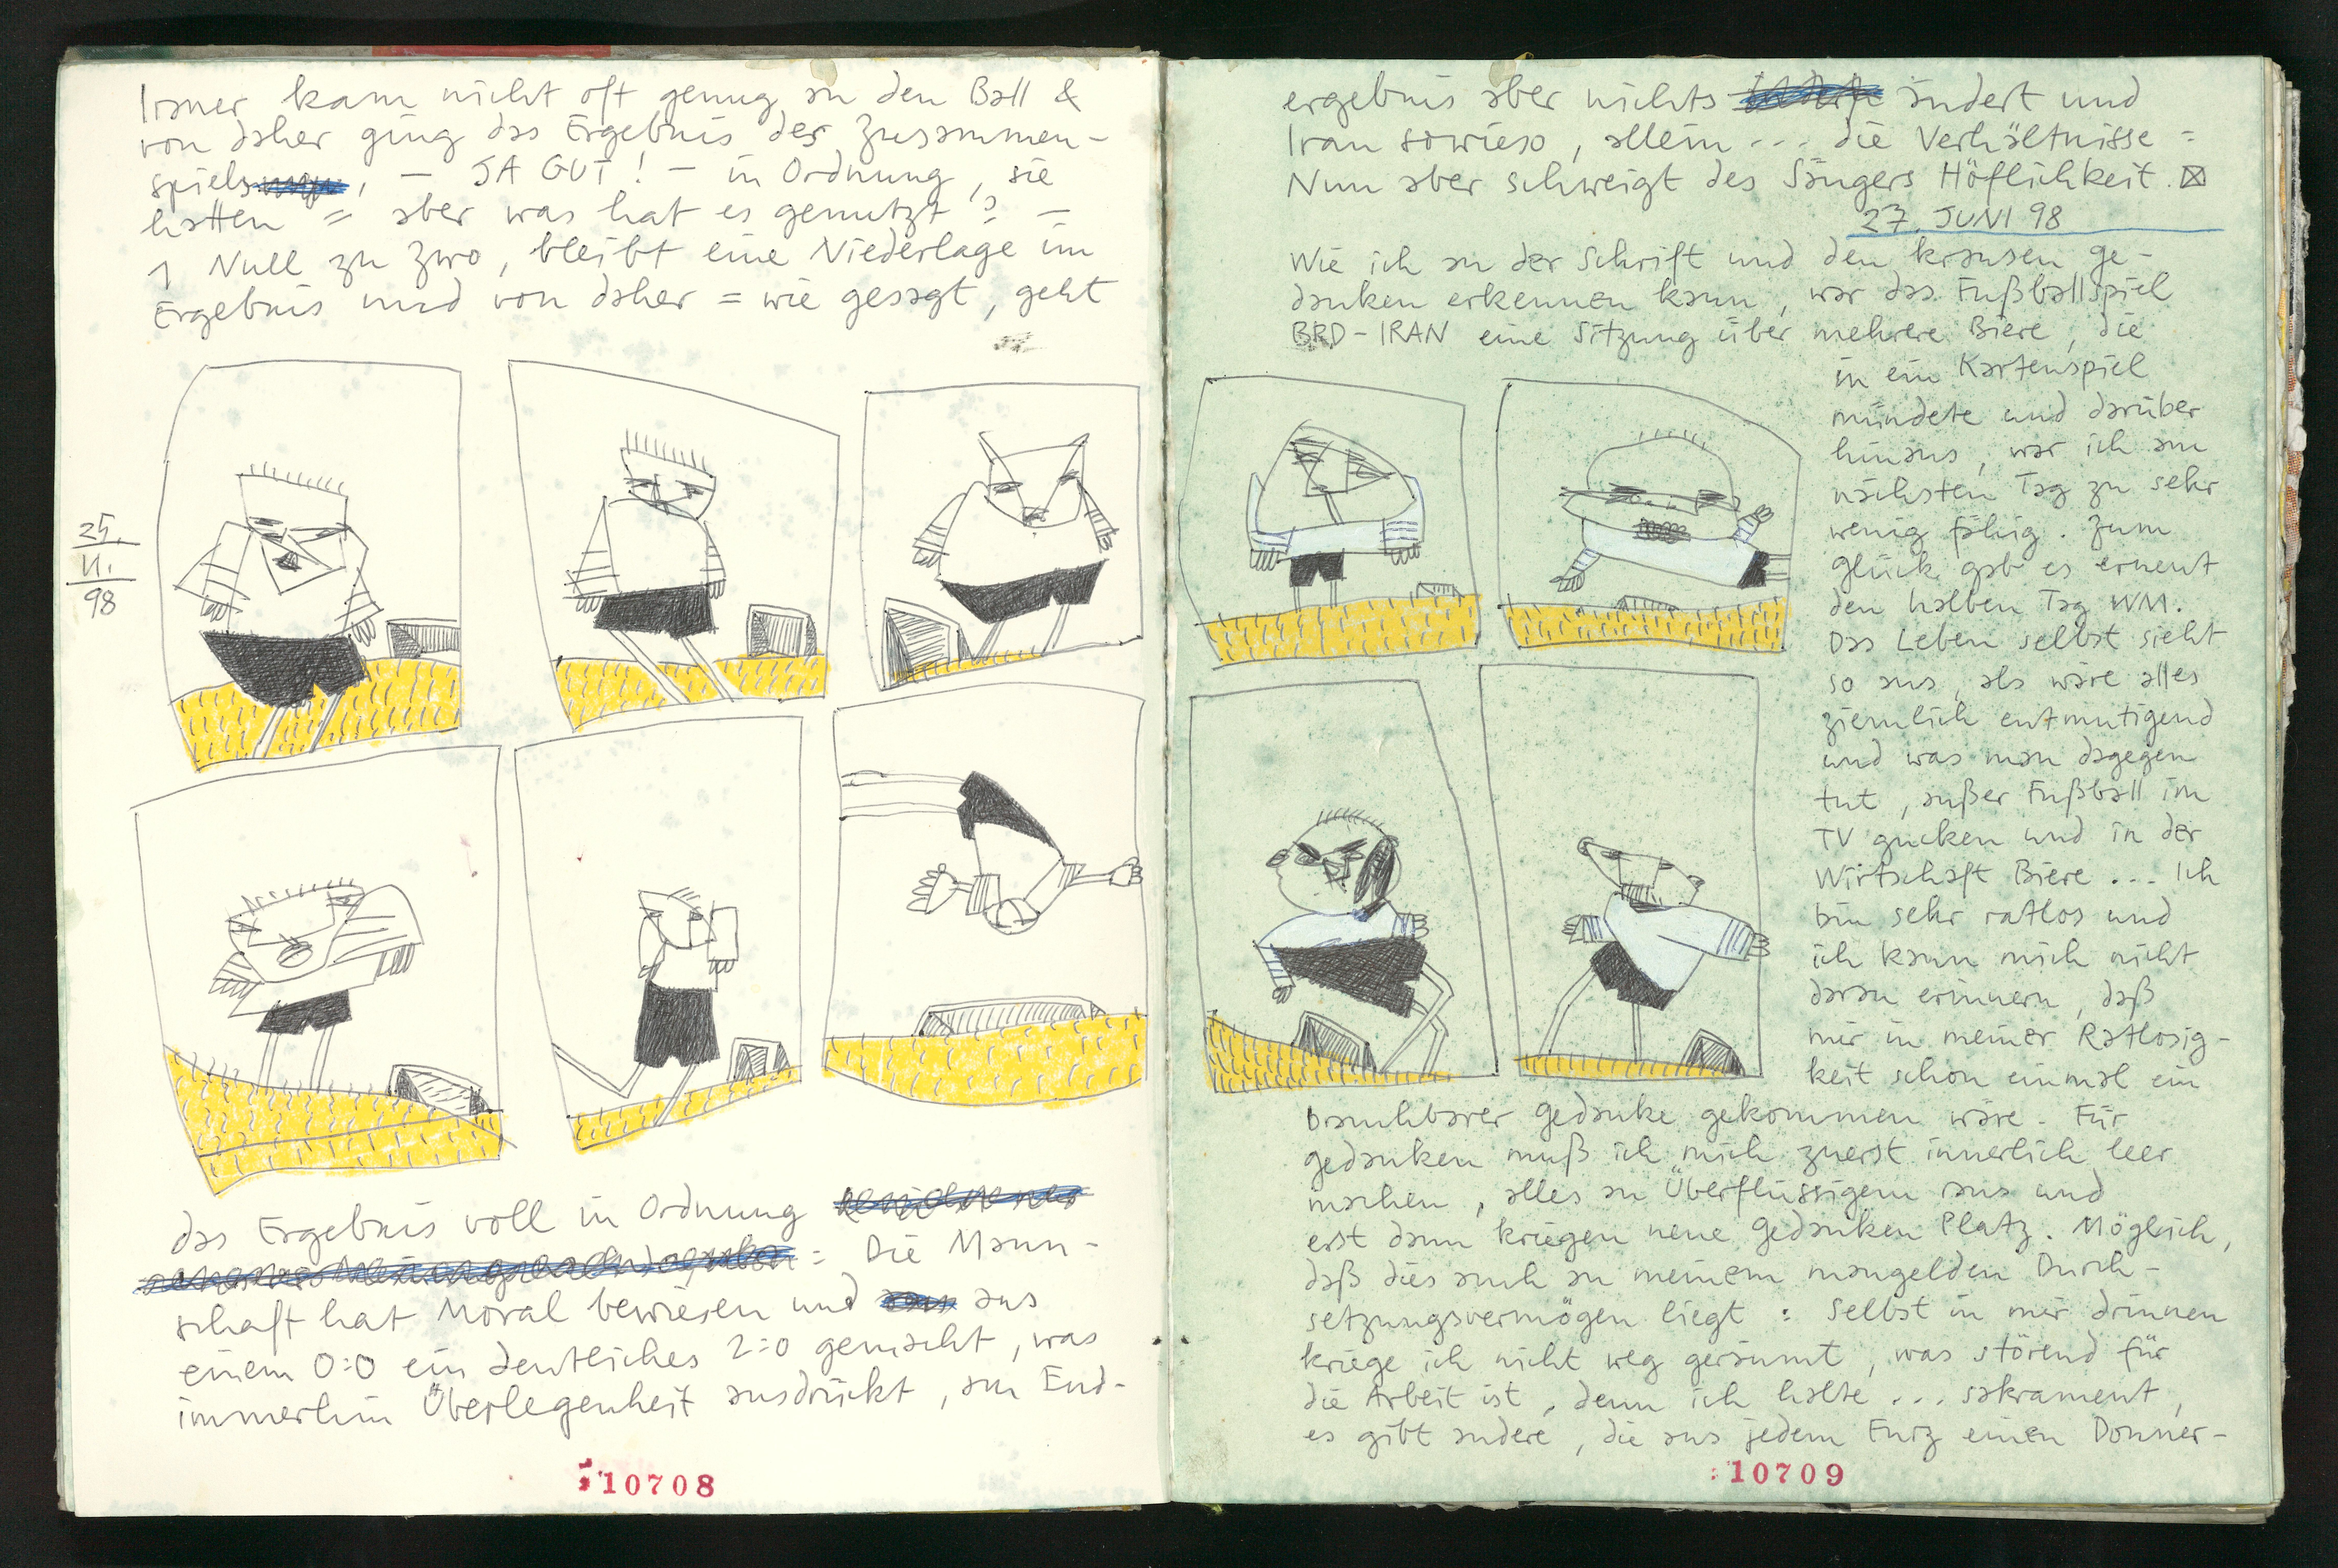 Iraner kam nicht oft genug an den Ball &
von daher ging das Ergebnis des Zusammen-
spiels, – JA GUT! – in Ordnung, sie
hatten = aber was hat es genutzt? –
1 Null zu Zwo, bleibt eine Niederlage im
Ergebnis und von daher = wie gesagt, geht
25.
11.
98
das Ergebnis voll in Ordnung
: Die Mann-
schaft hat Moral bewiesen und aus
einem 0:0 ein deutliches 2:0 gemacht, was
immerhin Überlegenheit ausdrückt, am End-
10708
ergebnis aber nichts ändert und
Iran sowieso, allein ... die Verhältnisse =
Nun aber schweigt des Sängers Höflichkeit.
27. JUNI 98
Wie ich an der Schrift und den krausen Ge-
danken erkennen kann, war das Fußballspiel
BRD-IRAN eine Sitzung über mehrere Biere, die
in ein Kartenspiel
mündete und darüber
hinaus, war ich am
nächsten Tag zu sehr
wenig fähig. Zum
Glück gab es erneut
den halben Tag WM.
Das Leben selbst sieht
so aus, als wäre alles
ziemlich entmutigend
und was man dagegen
tut, außer Fußball im
TV gucken und in der
Wirtschaft Biere ... Ich
bin sehr ratlos und
ich kann mich nicht
daran erinnern, daß
mir in meiner Ratlosig-
keit schon einmal ein
brauchbarer Gedanke gekommen wäre. Für
Gedanken muß ich mich zuerst innerlich leer
machen, alles an Überflüssigem raus und
erst dann kriegen neue Gedanken Platz. Möglich,
daß dies auch an meinem mangelden Durch-
setzungsvermögen liegt : Selbst in mir drinnen
kriege ich nicht weg geräumt, was störend für
die Arbeit ist, denn ich halte ... sakrament,
es gibt andere, die aus jedem Furz einen Donner-
10709